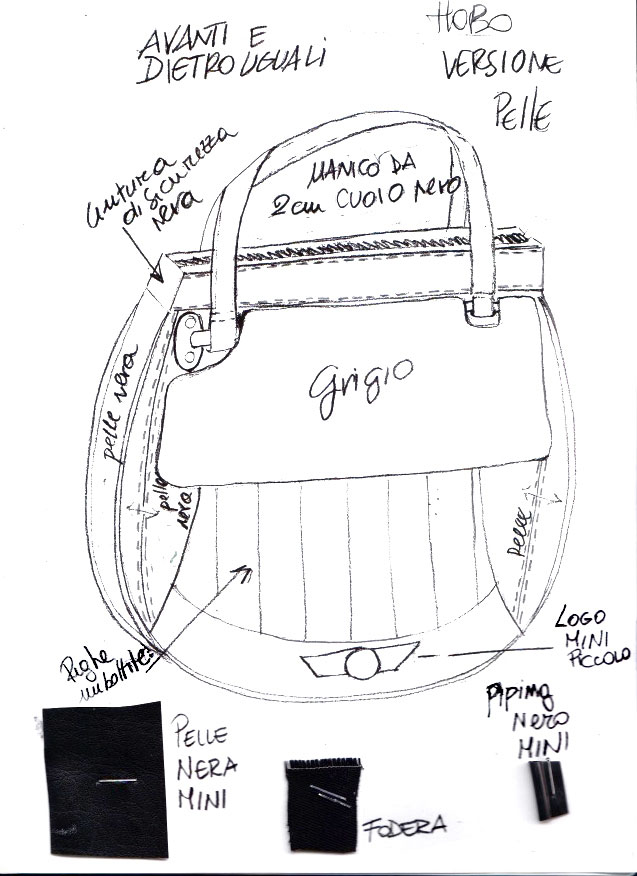 AVANTI E
DIETRO UGUALI
HOBO
VERSIONE
PELLE
cintura
di sicurezza
nera
MANICO DA
2cm CUOIO NERO
Grigio
pelle nera
pelle
nera
pelle
Righe
imbottite
LOGO
MINI
PICCOLO
PELLE
NERA
MINI
FODERA
piping
NERO
MINI